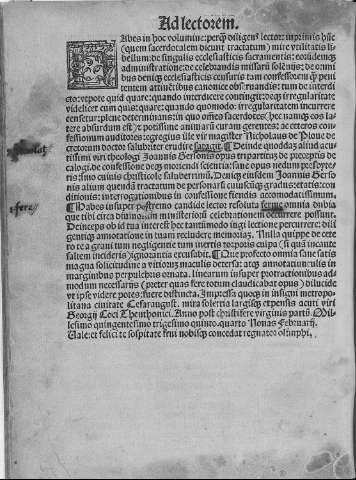 Ad lectorem.
Habes in hoc volumine: perq̃ diligens lector: inprimis hũc
(quem sacerdotalem dicunt tractatum) mire vtilitatis li
bellum: de singulis ecclesiasticis sacramentis: eorũdemq3
administratione: de celebrandis missarũ solẽnijs: de omni
bus deniq3 ecclesiasticis censuris tam confessorem q̃ peni
tentem attinẽtibus canonice obſeruandis: tum de interdi
cto: vtpote quid quare: quando interdicere contingit: decq3 irregularitate
videlicet cum quis: quare: quando quomodo: irregularitatem incurrere
censetur: plene determinans: in quo om̃es sacerdotes: (hec nanq3 eos la
tere absurdum est) et potissime animarũ curam gerentes: ac ceteros con
fessionum auditores: egregius ille vir magister Nicholaus de Ploue de
cretorum doctor salubriter erudire satagit. ¶ Deinde quoddaz aliud acu
tissimi viri theologi Joannis Gersonis opus tripartitum de preceptis de
calogi. de confessione decq3 moriendi scientia: sane opus nedum presbyte
ris: imo cuiuis christicole saluberrimũ. Deniq3 eiusdem Joannis Gerso
nis alium quendã tractatum de personarũ cuiuscũq3 gradus: etatis: con
ditionis: interrogationibus in confessione fiendis accomodatissimum.
¶ Habes insuper postremo candide lector resoluta ferme omnia dubia
que tibi circa diuinorum ministeriorũ celebrationem occurrere possunt.
Deinceps id tua interest hec tantimodo iugi lectione percurrere: dili
gentiq3 annotatione in tuam recludere memoriaz. Nulla quippe de cete
ro te a graui tum negligentie tum inertis torporis culpa (si quã incaute
saltem incideris) ignorantia excusabit. ¶ Que profecto omnia sane satis
magna solicitudine a vitiorum maculis detersa: atq3 annotatiunculis in
marginibus perpulchris ornata. linearum insuper protractionibus ad
modum necessarijs (preter quas fere totum claudicabat opus) dilucide
vt ipse videre potes: fuere distincta. Impressa quoq3 in insigni metropo
litana ciuitate Cesaraugust. mira solertia largisq3 expensis acuti viri
Georgij Coci Theuthonici. Anno post christifere virginis partũ Mil
lesimo quingentesimo trigesimo quinto. quarto Nonas Februarij.
Vale: et felici te sospitate frui nobisq3 concedat regnator olimphi.